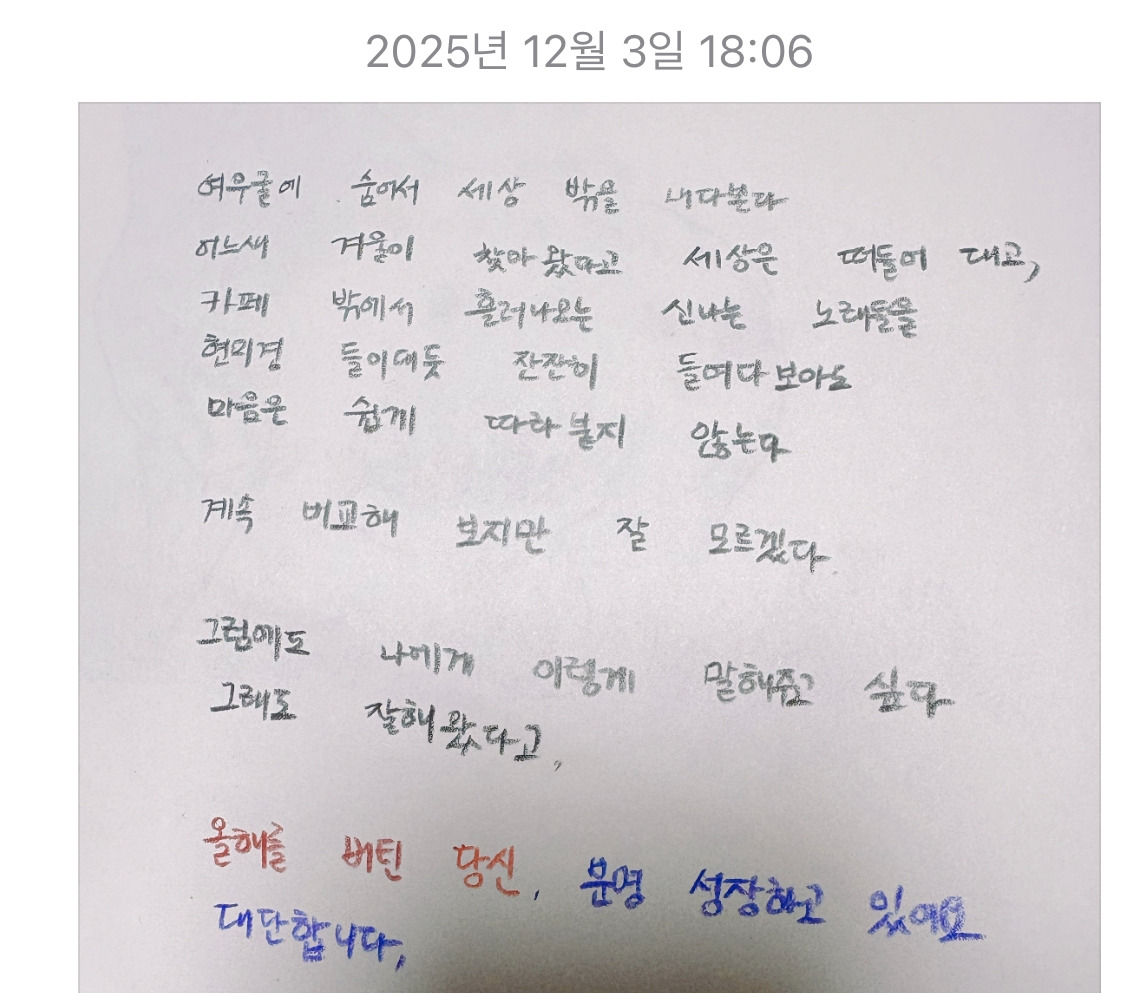 2025년 12월 3일 18:06
여우굴에 숨어서 세상 밖을 내다본다
어느새 겨울이 찾아 왔다고 세상은 떠들어 대고,
카페 밖에서 흘러나오는 신나는 노래들을
현미경 들이대듯 잔잔히 들여다 보아도
마음은 쉽게 따라 붙지 않는다
계속 비교해 보지만 잘 모르겠다.
그럼에도 나에게 이렇게 말해주고 싶다
그래도 잘해 왔다고,
올해를 버틴 당신, 분명 성장하고 있어요
대단합니다,